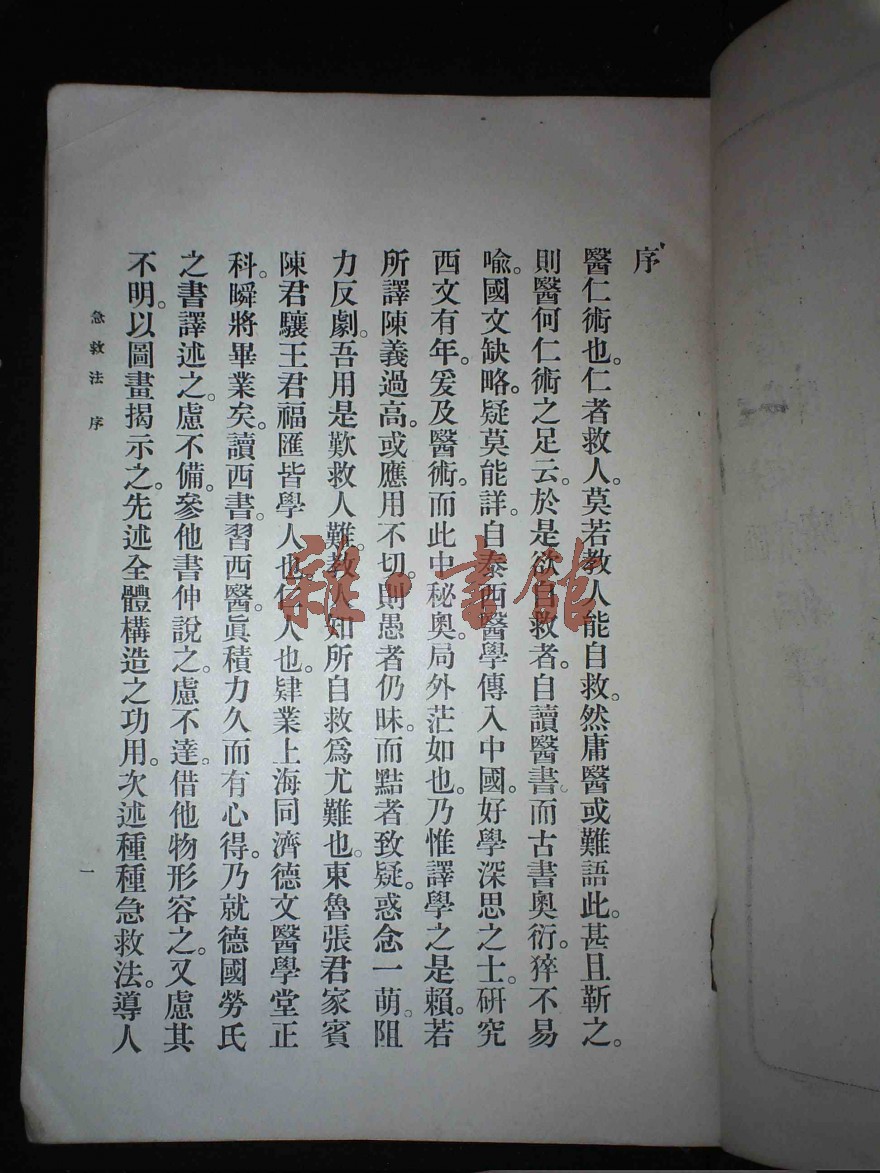 序
醫仁術也。仁者救人。莫若教人能自救。然庸醫或難語此。甚且靳之。
則醫何仁術之足云。於是欲自救者。自讀醫書。而古書奧衍。猝不易
喩。國文缺略。疑莫能詳。自泰西醫學傳入中國。好學深思之士。研究
西文有年。爰及醫術。而此中秘奧。局外茫如也。乃惟譯學之是賴。若
所譯陳義過高。或應用不切。則愚者仍昧。而黠者致疑。惑念一萌。阻
力反劇。吾用是歎救人難。教人知所自救爲尤難也。東魯張君家賓
陳君驤王君福匯皆學人也。仁人也。肄業上海同濟德文醫學堂正
科。瞬將畢業矣。讀西書。習西醫。眞積力久而有心得。乃就德國勞氏
之書譯述之。慮不備。參他書伸說之。慮不達。借他物形容之。又慮其
不明。以圖畫揭示之。先述全體構造之功用。次述種種急救法。導人
急救法 序
一
雜·書館